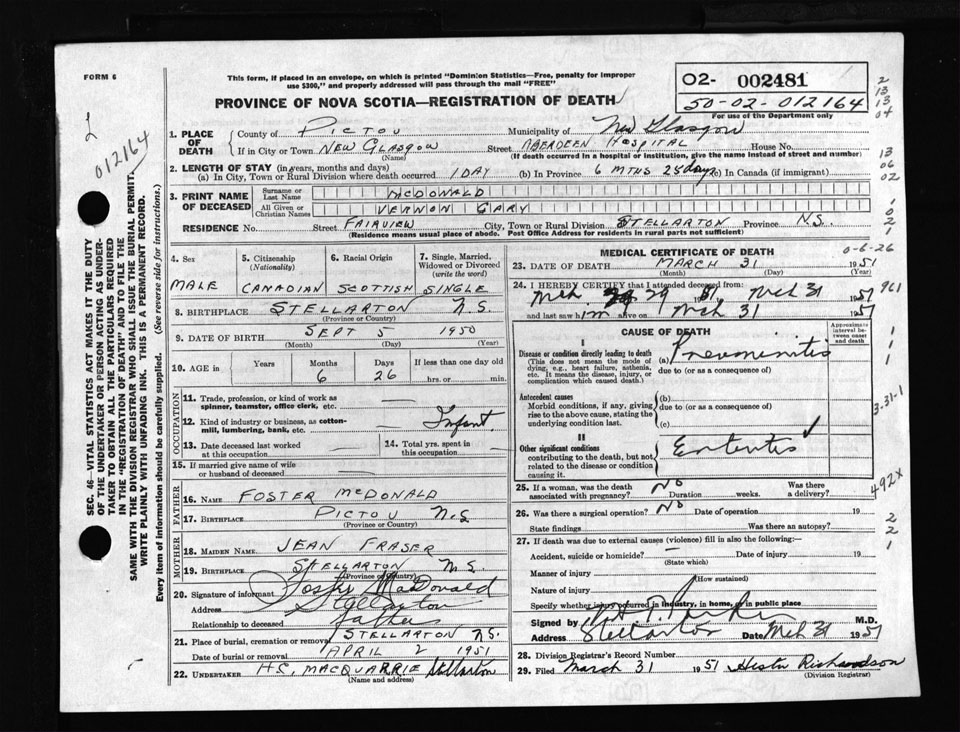 FORM 6
This form, if placed in an envelope, on which is printed "Dominion Statistics—Free, penalty for improper
use $300," and properly addressed will pass through the mail "FREE"
O2- 002481
50-02-012164
For use of the Department only
PROVINCE OF NOVA SCOTIA—REGISTRATION OF DEATH
012164
1. PLACE OF DEATH
County of PICTOU Municipality of New Glasgow
If in City or Town NEW GLASGOW Street ABERDEEN HOSPITAL House No.
(Name) (If death occurred in a hospital or institution, give the name instead of street and number)
2. LENGTH OF STAY (in years, months and days)
(a) In City, Town or Rural Division where death occurred 1 DAY (b) In Province 6 MTHS 25 days (c) In Canada (if immigrant)
3. PRINT NAME OF DECEASED
Surname or Last Name MCDONALD
All Given or Christian Names VERNON GARY
RESIDENCE No. Street FAIRVIEW City, Town or Rural Division STELLARTON Province N.S.
(Residence means usual place of abode. Post Office Address for residents in rural parts not sufficient)
4. Sex
MALE
5. Citizenship
(Nationality)
CANADIAN
6. Racial Origin
SCOTTISH
7. Single, Married,
Widowed or Divorced
(write the word)
SINGLE
8. BIRTHPLACE STELLARTON N.S.
(Province or Country)
9. DATE OF BIRTH SEPT 5 1950
(Month) (Day) (Year)
10. AGE in
Years Months Days If less than one day old
6 26 hrs. or min.
OCCUPATION
11. Trade, profession, or kind of work as
spinner, teamster, office clerk, etc.
12. Kind of industry or business, as cotton-
mill, lumbering, bank, etc. Infant
13. Date deceased last worked
at this occupation
14. Total yrs. spent in
this occupation
15. If married give name of wife
or husband of deceased
FATHER
16. NAME FOSTER MCDONALD
17. BIRTHPLACE PICTOU N.S
(Province or Country)
MOTHER
18. MAIDEN NAME JEAN FRASER
19. BIRTHPLACE STELLARTON N.S.
(Province or Country)
20. Signature of informant Foster MacDonald
Address Stellarton
Relationship to deceased father
21. Place of burial, cremation or removal STELLARTON N.S.
Date of burial or removal APRIL 2 1951
22. UNDERTAKER H.S. MACQUARRIE Stellarton
(Name and address)
MEDICAL CERTIFICATE OF DEATH
0-6-26
23. DATE OF DEATH MARCH 31 1951
(Month) (Day) (Year)
24. I HEREBY CERTIFY that I attended deceased from:
Mch 29 1951, Mch 31 1951
and last saw him alive on Mch 31 1951
CAUSE OF DEATH
Approximate
interval between
onset and
death
I
Disease or condition directly leading to death
(This does not mean the mode of
dying, e.g., heart failure, asthenia,
etc. It means the disease, injury, or
complication which caused death.)
Pneumonitis
due to (or as a consequence of)
Antecedent causes
Morbid conditions, if any, giving
rise to the above cause, stating the
underlying condition last.
(b)
due to (or as a consequence of)
(c)
II
Other significant conditions
contributing to the death, but not
related to the disease or condition
causing it.
Enteritis
25. If a woman, was the death
associated with pregnancy? No Duration weeks. Was there
a delivery?
26. Was there a surgical operation? No Date of operation 19
State findings Was there an autopsy?
27. If death was due to external causes (violence) fill in also the following:—
Accident, suicide or homicide? Date of injury 19
(State which)
Manner of injury
(How sustained)
Nature of injury
Specify whether injury occurred in industry, in home, or in public place
Signed by M.D.
Address Stellarton Date Mch 31 1951
28. Division Registrar's Record Number
29. Filed March 31 1951 Hester Richardson
(Division Registrar)
2
13
13
04
13
06
02
961
3-31-1
492X
2
2
1
SEC. 46—VITAL STATISTICS ACT MAKES IT THE DUTY
OF THE UNDERTAKER OR PERSON ACTING AS UNDER-
TAKER TO OBTAIN ALL THE PARTICULARS REQUIRED
IN THE "REGISTRATION OF DEATH" AND TO FILE THE
SAME WITH THE DIVISION REGISTRAR WHO SHALL ISSUE THE BURIAL PERMIT.
WRITE PLAINLY WITH UNFADING INK. THIS IS A PERMANENT RECORD.
Every item of information should be carefully supplied. (See reverse side for instructions.)